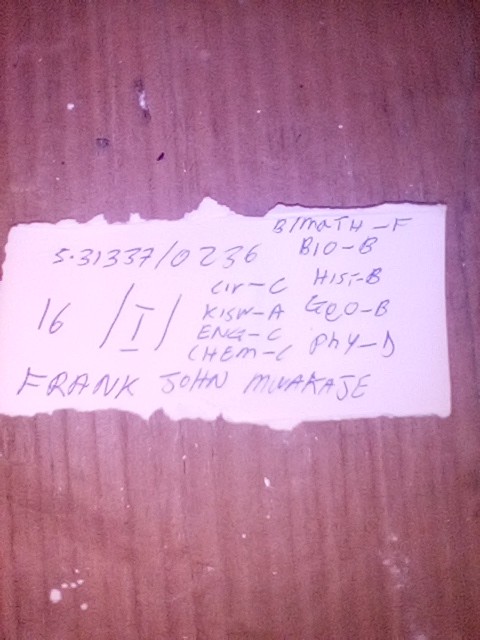 B/MATH - F
S.31337/0236 BIO - B
CIV - C HIST - B
16 /I/ KISW - A GEO - B
ENG - C
CHEM - C PHY - D
FRANK JOHN MWAKAJE